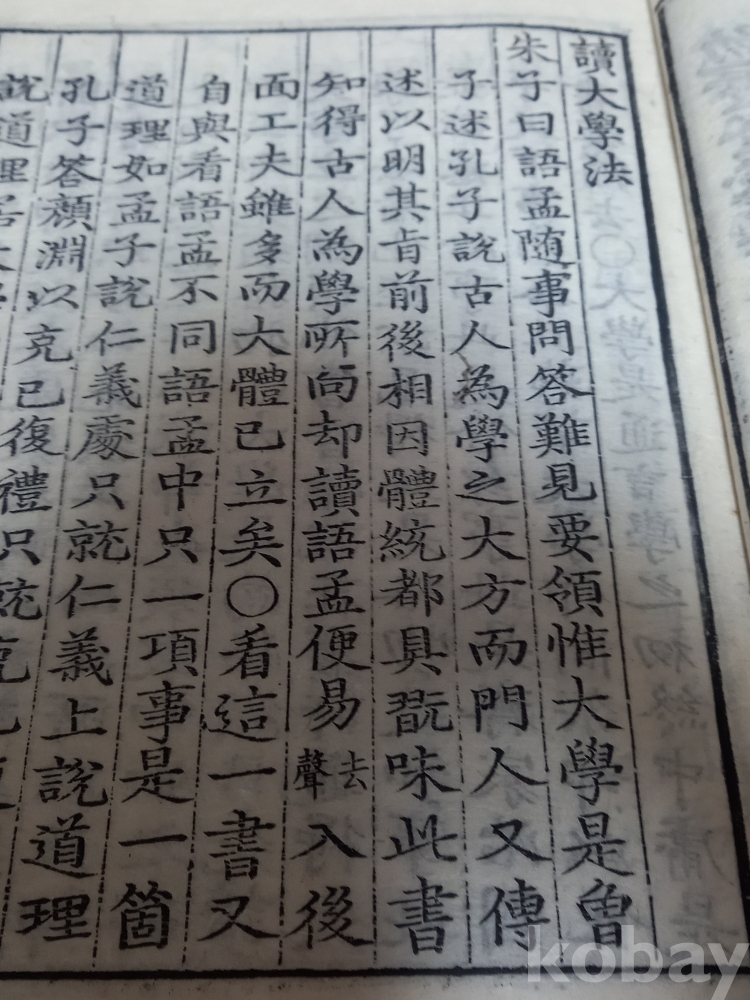 讀大學法
朱子曰語孟隨事問答難見要領惟大學是曾
子述孔子說古人為學之大方而門人又傳
述以明其旨前後相因體統都具翫味此書
知得古人為學所向却讀語孟便易去聲入後
面工夫雖多而大體已立矣○看這一書又
自與看語孟不同語孟中只一項事是一箇
道理如孟子說仁義處只就仁義上說道理
孔子答顏淵以克己復禮只就克己
說道理若大
kobay